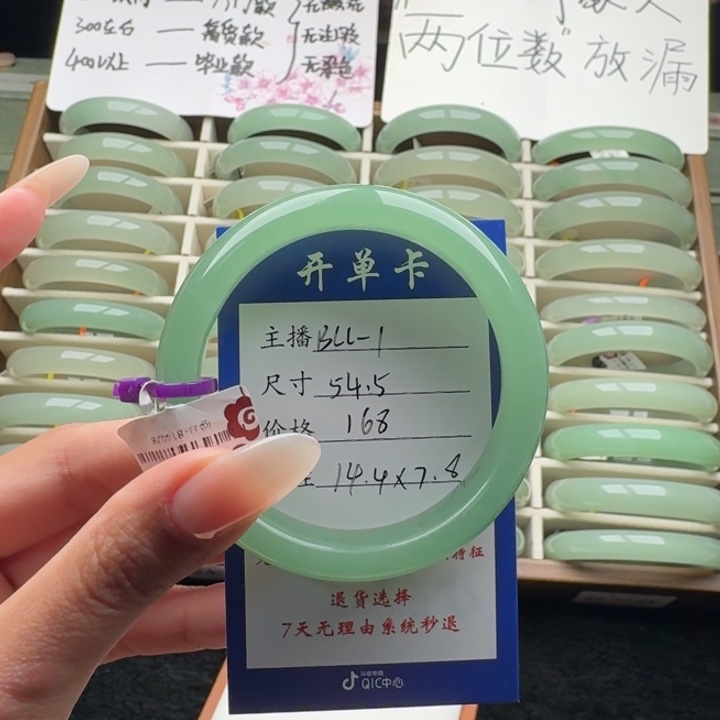 无酸洗
300左右 — 售货款 无注胶
400以上 — 毕业款 无染色
"两位数"放漏
开单卡
主播 BLL-1
尺寸 54.5
价格 168
14.4x7.8
特征
退货选择
7天无理由系统秒退
QIC中心